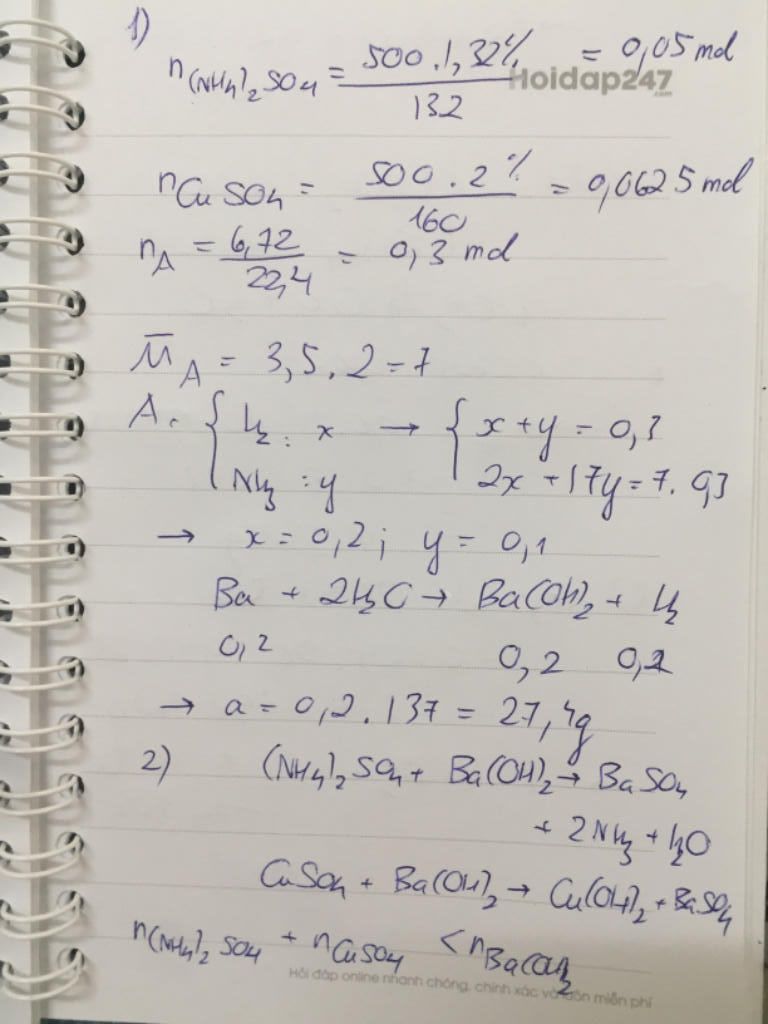 1)
n(NH₄)₂SO₄ = 500.1,32% / 132 = 0,05 mol
Hoidap247
.com
nCuSO₄ = 500.2% / 160 = 0,0625 mol
nA = 6,72 / 22,4 = 0,3 mol
M̄A = 3,5.2 = 7
A. { H₂ : x → { x + y = 0,3
NH₃ : y 2x + 17y = 7.0,3
→ x = 0,2 ; y = 0,1
Ba + 2H₂O → Ba(OH)₂ + H₂
0,2 0,2 0,2
→ a = 0,2.137 = 27,4g
2) (NH₄)₂SO₄ + Ba(OH)₂ → BaSO₄
+ 2NH₃ + H₂O
CuSO₄ + Ba(OH)₂ → Cu(OH)₂ + BaSO₄
n(NH₄)₂SO₄ + nCuSO₄ < nBa(OH)₂
Hỏi đáp online nhanh chóng, chính xác và luôn miễn phí